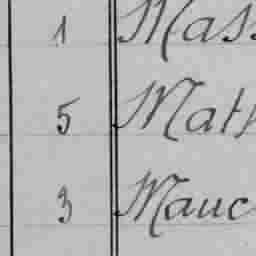 1 Mass
5 Math
3 Mauc